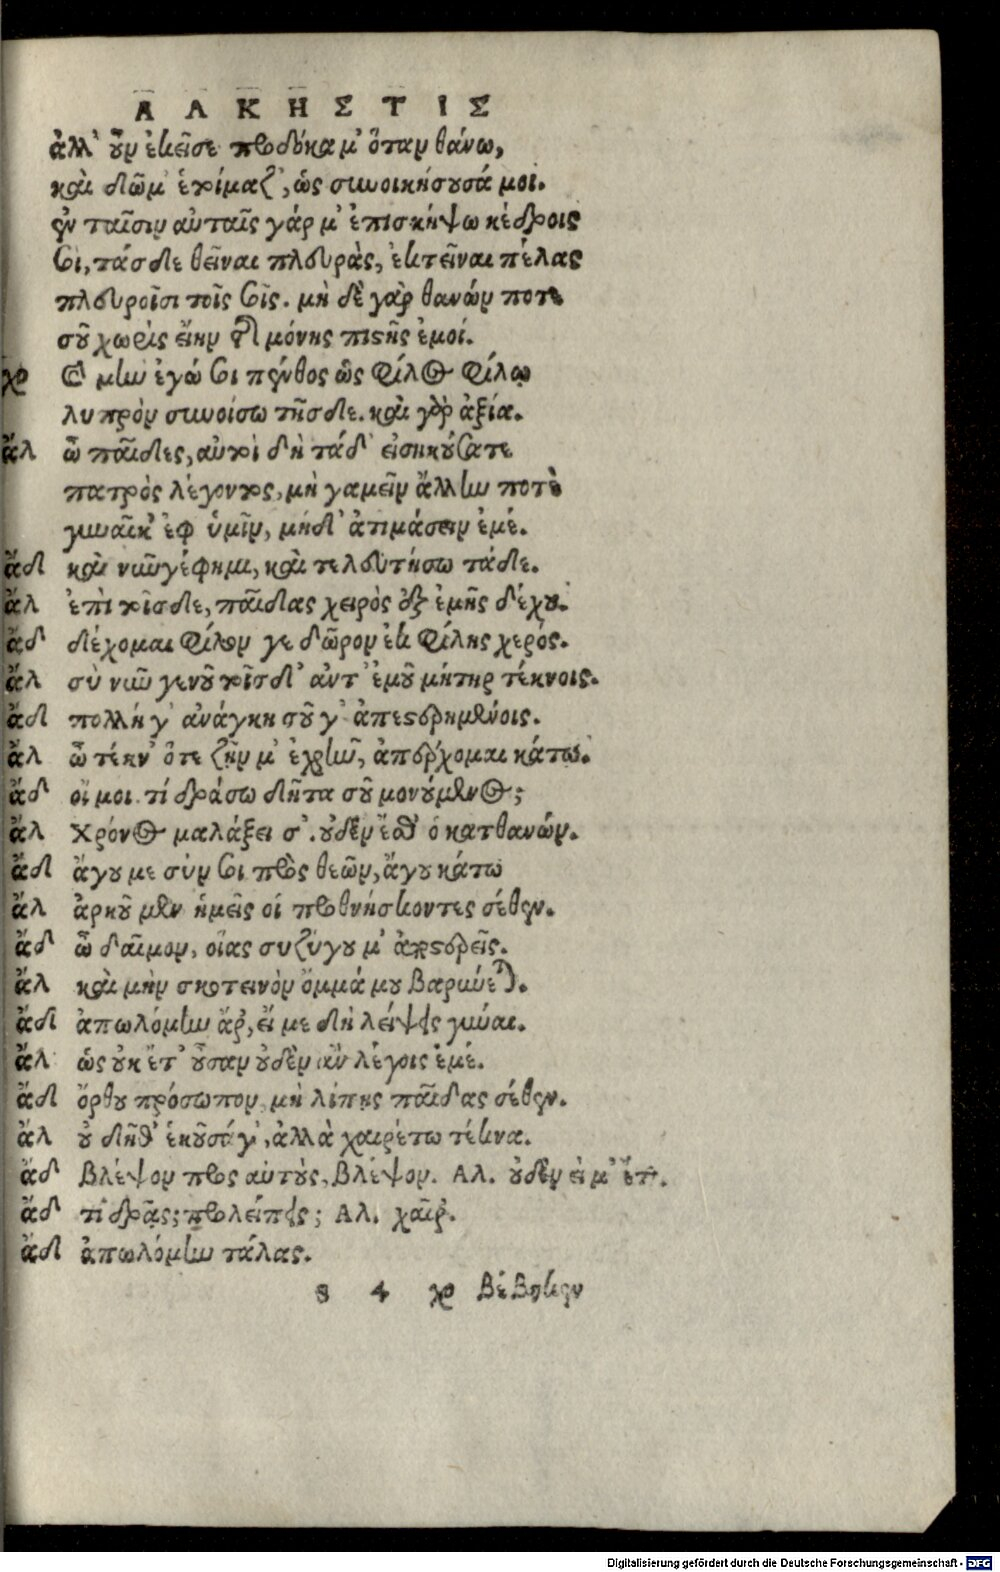 ΑΛΚΗΣΤΙΣ
ἀλλ' οὖν ἐκεῖσε προσδόκα μ' ὅταν θάνω,
καὶ δῶμ' ἑτοίμαζ', ὡς συνοικήσουσά μοι.
ἐν ταῖσιν αὐταῖς γάρ μ' ἐπισκήψω κέδροις
σοι, τάσδε θεῖναι πλευρὰς, ἐκτεῖναι πέλας
πλευροῖσι τοῖς σοῖς. μὴ δὲ γὰρ θανών ποτε
σοῦ χωρὶς εἴην τῆς μόνης πιστῆς ἐμοί.
χο Καὶ μὴν ἐγώ σοι πένθος ὡς φίλος φίλῳ
λυπρὸν συνοίσω τῆσδε. καὶ γὰρ ἀξία.
ἄλ ὦ παῖδες, αὐτοὶ δὴ τάδ' εἰσηκούσατε
πατρὸς λέγοντος, μὴ γαμεῖν ἄλλην ποτὲ
γυναῖκ' ἐφ' ὑμῖν, μήδ' ἀτιμάσειν ἐμέ.
ἄδ καὶ νῦν γέ φημι, καὶ τελευτήσω τάδε.
ἄλ ἐπὶ τοῖσδε, παῖδας χειρὸς ἐξ ἐμῆς δέχου.
ἄδ δέχομαι φίλον γε δῶρον ἐκ φίλης χερός.
ἄλ σὺ νῦν γενοῦ τοῖσδ' ἀντ' ἐμοῦ μήτηρ τέκνοις.
ἄδ πολλή γ' ἀνάγκη σοῦ γ' ἀπεστερημένοις.
ἄλ ὦ τέκν' ὅτε ζῆν μ' ἐχρῆν, ἀπέρχομαι κάτω.
ἄδ οἴ μοι τί δράσω δῆτα σοῦ μονούμενος;
ἄλ χρόνος μαλάξει σ'. οὐδέν ἐσθ' ὁ κατθανών.
ἄδ ἄγου με σύν σοι πρὸς θεῶν, ἄγου κάτω
ἄλ ἀρκοῦμεν ἡμεῖς οἱ προθνήσκοντες σέθεν.
ἄδ ὦ δαῖμον, οἵας συζύγου μ' ἀποστερεῖς.
ἄλ καὶ μὴν σκοτεινὸν ὄμμά μου βαρύνεται.
ἄδ ἀπωλόμην ἄρ', εἴ με δὴ λείψεις γύναι.
ἄλ ὡς οὐκ ἔτ' οὖσαν οὐδὲν ἂν λέγοις ἐμέ.
ἄδ ὄρθου πρόσωπον, μὴ λίπῃς παῖδας σέθεν.
ἄλ οὐ δῆθ' ἑκοῦσά γ', ἀλλὰ χαιρέτω τέκνα.
ἄδ βλέψον πρὸς αὐτούς, βλέψον. Αλ. οὐδέν εἰμ' ἔτι.
ἄδ τί δρᾷς; προλείπεις; Αλ. χαῖρε.
ἄδ ἀπωλόμην τάλας.
8 4 χο βέβηκεν
Digitalisierung gefördert durch die Deutsche Forschungsgemeinschaft - DFG